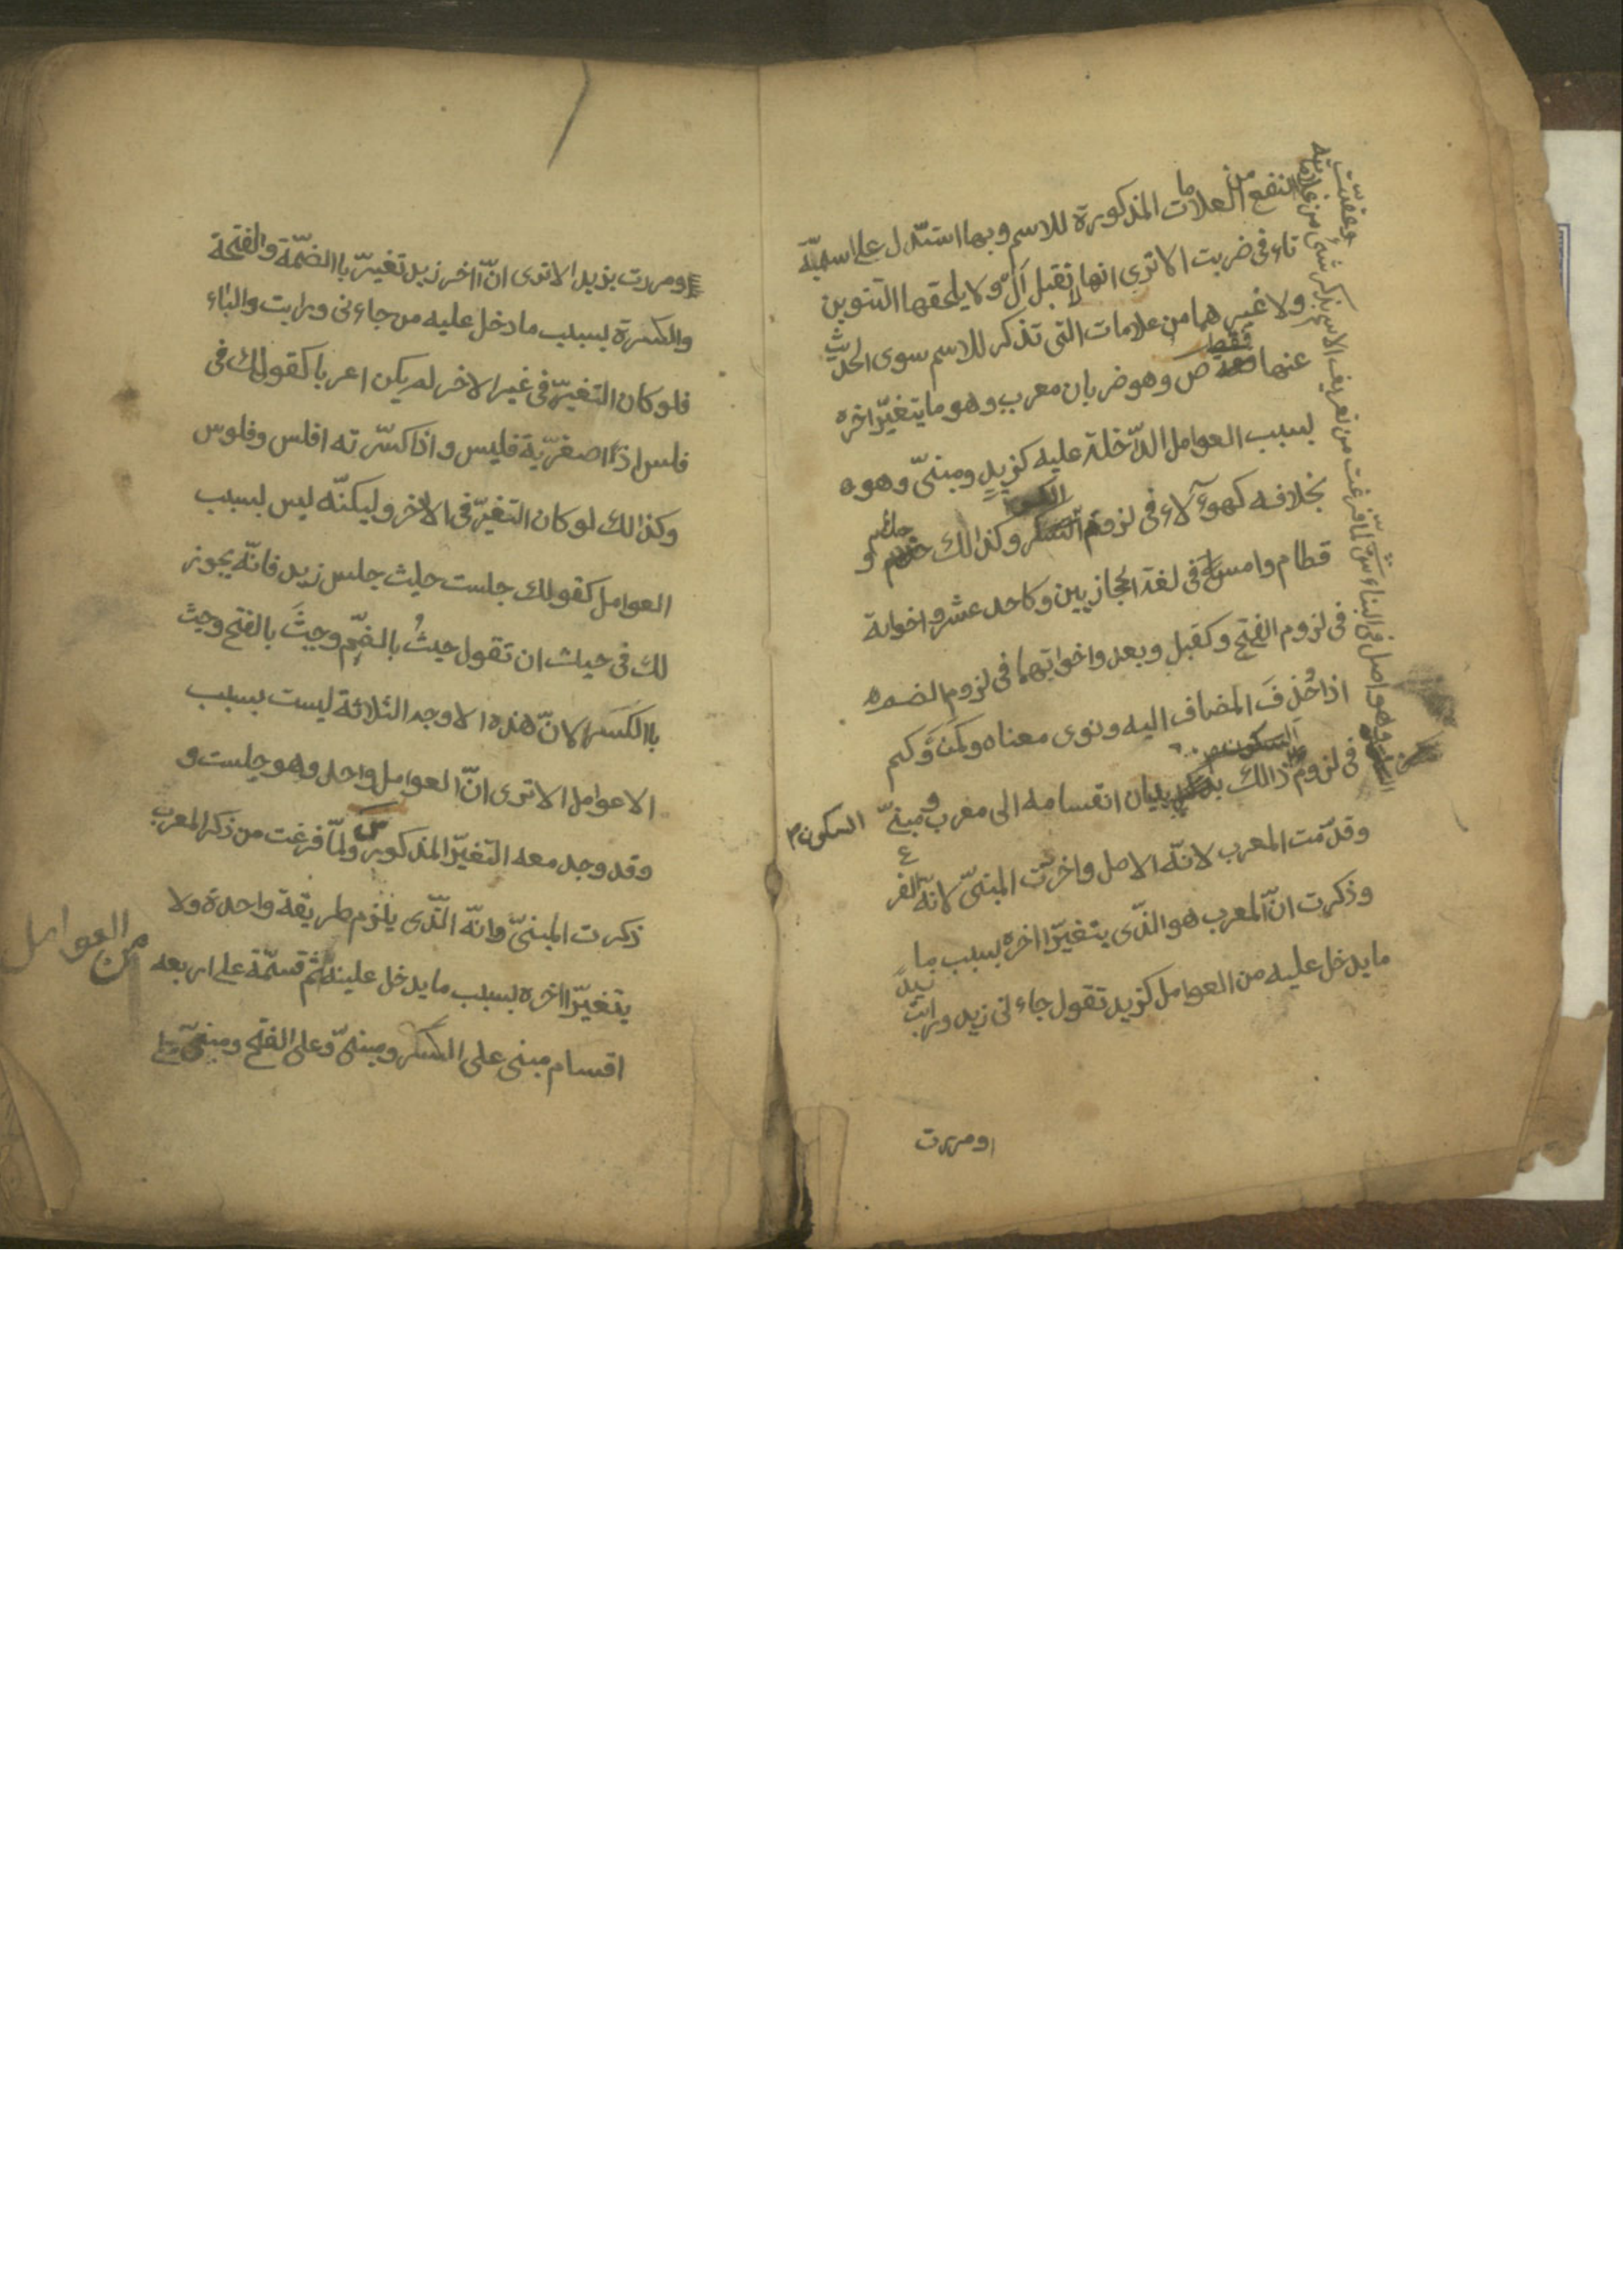 انفع من العلامات المذكورة للاسم وبها استدّل على اسميّة
تاء فى ضربت الا ترى انها لا تقبل اَلْ ولا يلحقها التنوين
ولا غيرهما من علامات التى تذكر للاسم سوى الحديث
عنها فقط ص وهو ضربان معرب وهو ما يتغيّر اخره
بسبب العوامل الدّاخلة عليه كزيدٍ ومبنىّ وهو
بخلافه كهوءلاء فى لزوم الكسر وكذالك حذام و
قطام وامس فى لغة الحجازيين وكاحد عشر واخواته
فى لزوم الفتح وكقبل وبعد واخواتهما فى لزوم الضم
اذا حُذِفَ المضاف اليه ونوى معناه وكمَنْ وَكم
فى لزوم السكون
ذالك بيان انقسامه الى معرب ومبنىّ
السكون
وقدّمت المعرب لانّه الاصل واخرّت المبنىّ لانّه الفرع
وذكرت انّ المعرب هو الذّى يتغيّر اخره بسبب ما
ما يدخل عليه من العوامل كزيد تقول جاءنى زيد ورايت
زيدً
ومررت
وهو اصل فى البناء ش لمّا فرغت من تعريف الاسم بذكر شئ من علاماته
وعقّبت
ومررت بزيد الا ترى انّ اخر زيد تغيّر باالضمّة والفتحة
والكسرة بسبب ما دخل عليه من جاءنى ورايت والباء
فلو كان التغيّر فى غير الاخر لم يكن اعربا كقولك فى
فلس اذا صغريّة فليس واذا كسّرته افلس وفلوس
وكذالك لو كان التغيّر فى الاخر وليكنّه ليس بسبب
العوامل كقولك جلست حيث جلس زيد فانّه يجوز
لك فى حيث ان تقول حيثُ بالضمّ وحيثَ بالفتح وحيث
باالكَسر الا انّ هذه الاوجه الثلاثة ليست بسبب
الاعوامل الا ترى انّ العوامل واحد وهو جلست و
وقد وجد معه التغيّر المذكور س ولمّا فرغت من ذكر المعرب
ذكرت المبنىّ وانّه الّذى يلزم طريقة واحدة ولا
يتغيّر اخره بسبب ما يدخل عليه ثم قسمّة على اربعه
من العوامل
اقسام مبنى على الكسر ومبنىّ وعلى الفتح ومبنىّ على